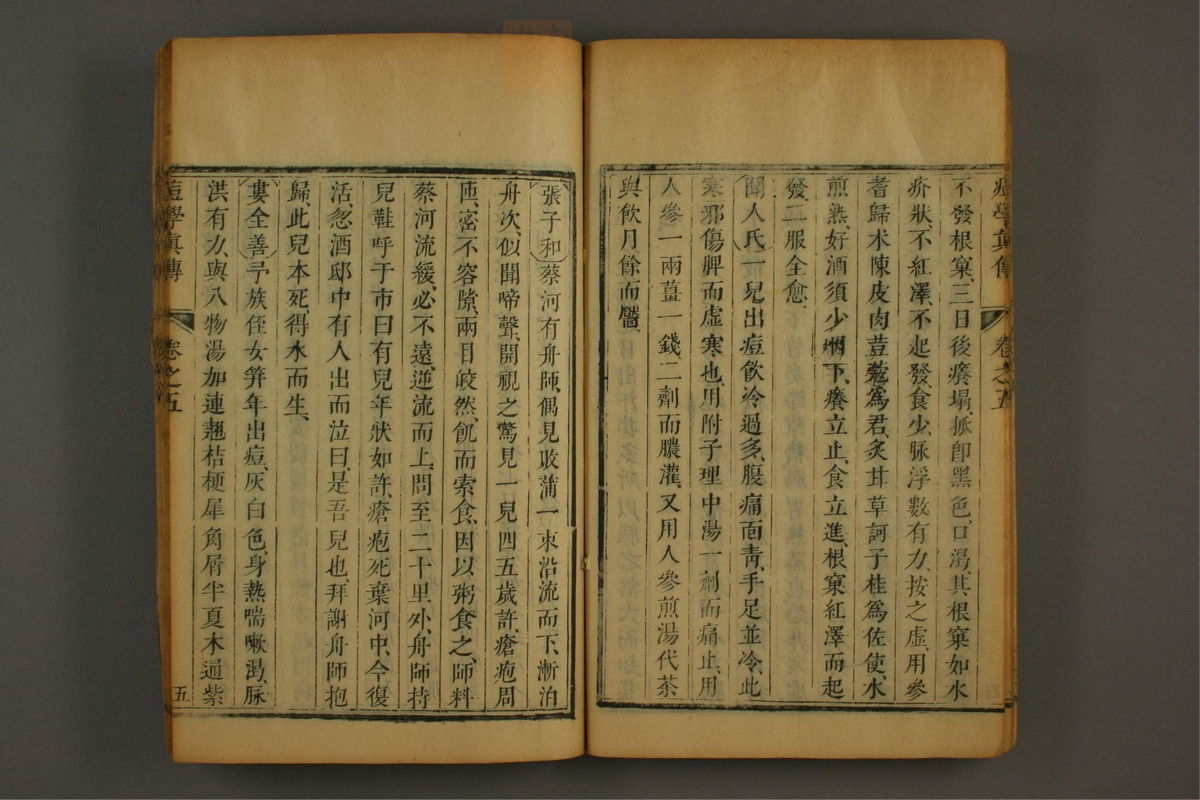 痘學真傳
卷之五
不發根窠三日後癢塌掀即黑色口渴其根窠如水
疥狀不紅澤不起發食少脉浮數有力按之虛用參
耆歸术陳皮肉荳蔻爲君炙甘草訶子桂爲佐使水
煎熟好酒須少咽下癢立止食立進根窠紅澤而起
發二服全愈
聞人氏一兒出痘飲冷過多腹痛面青手足並冷此
寒邪傷脾而虛寒也用附子理中湯一劑而痛止用
人參一兩薑一錢二劑而膿灌又用人參煎湯代茶
與飲月餘而靨
張子和蔡河有舟師偶見敗蒲一束沿流而下漸泊
舟次似聞啼聲開視之驚見一兒四五歲許瘡疱周
匝密不容隙兩目皎然飢而索食因以粥食之師料
蔡河流緩必不遠逆流而上問至二十里外舟師持
兒鞋呼于市曰有兒年狀如許瘡疱死棄河中今復
活忽酒邸中有人出而泣曰是吾兒也拜謝舟師抱
歸此兒本死得水而生
婁全善予族侄女笄年出痘灰白色身熱喘嗽渴脉
洪有力與八物湯加連翹桔梗犀角屑半夏木通紫
痘學真傳
卷之五
五